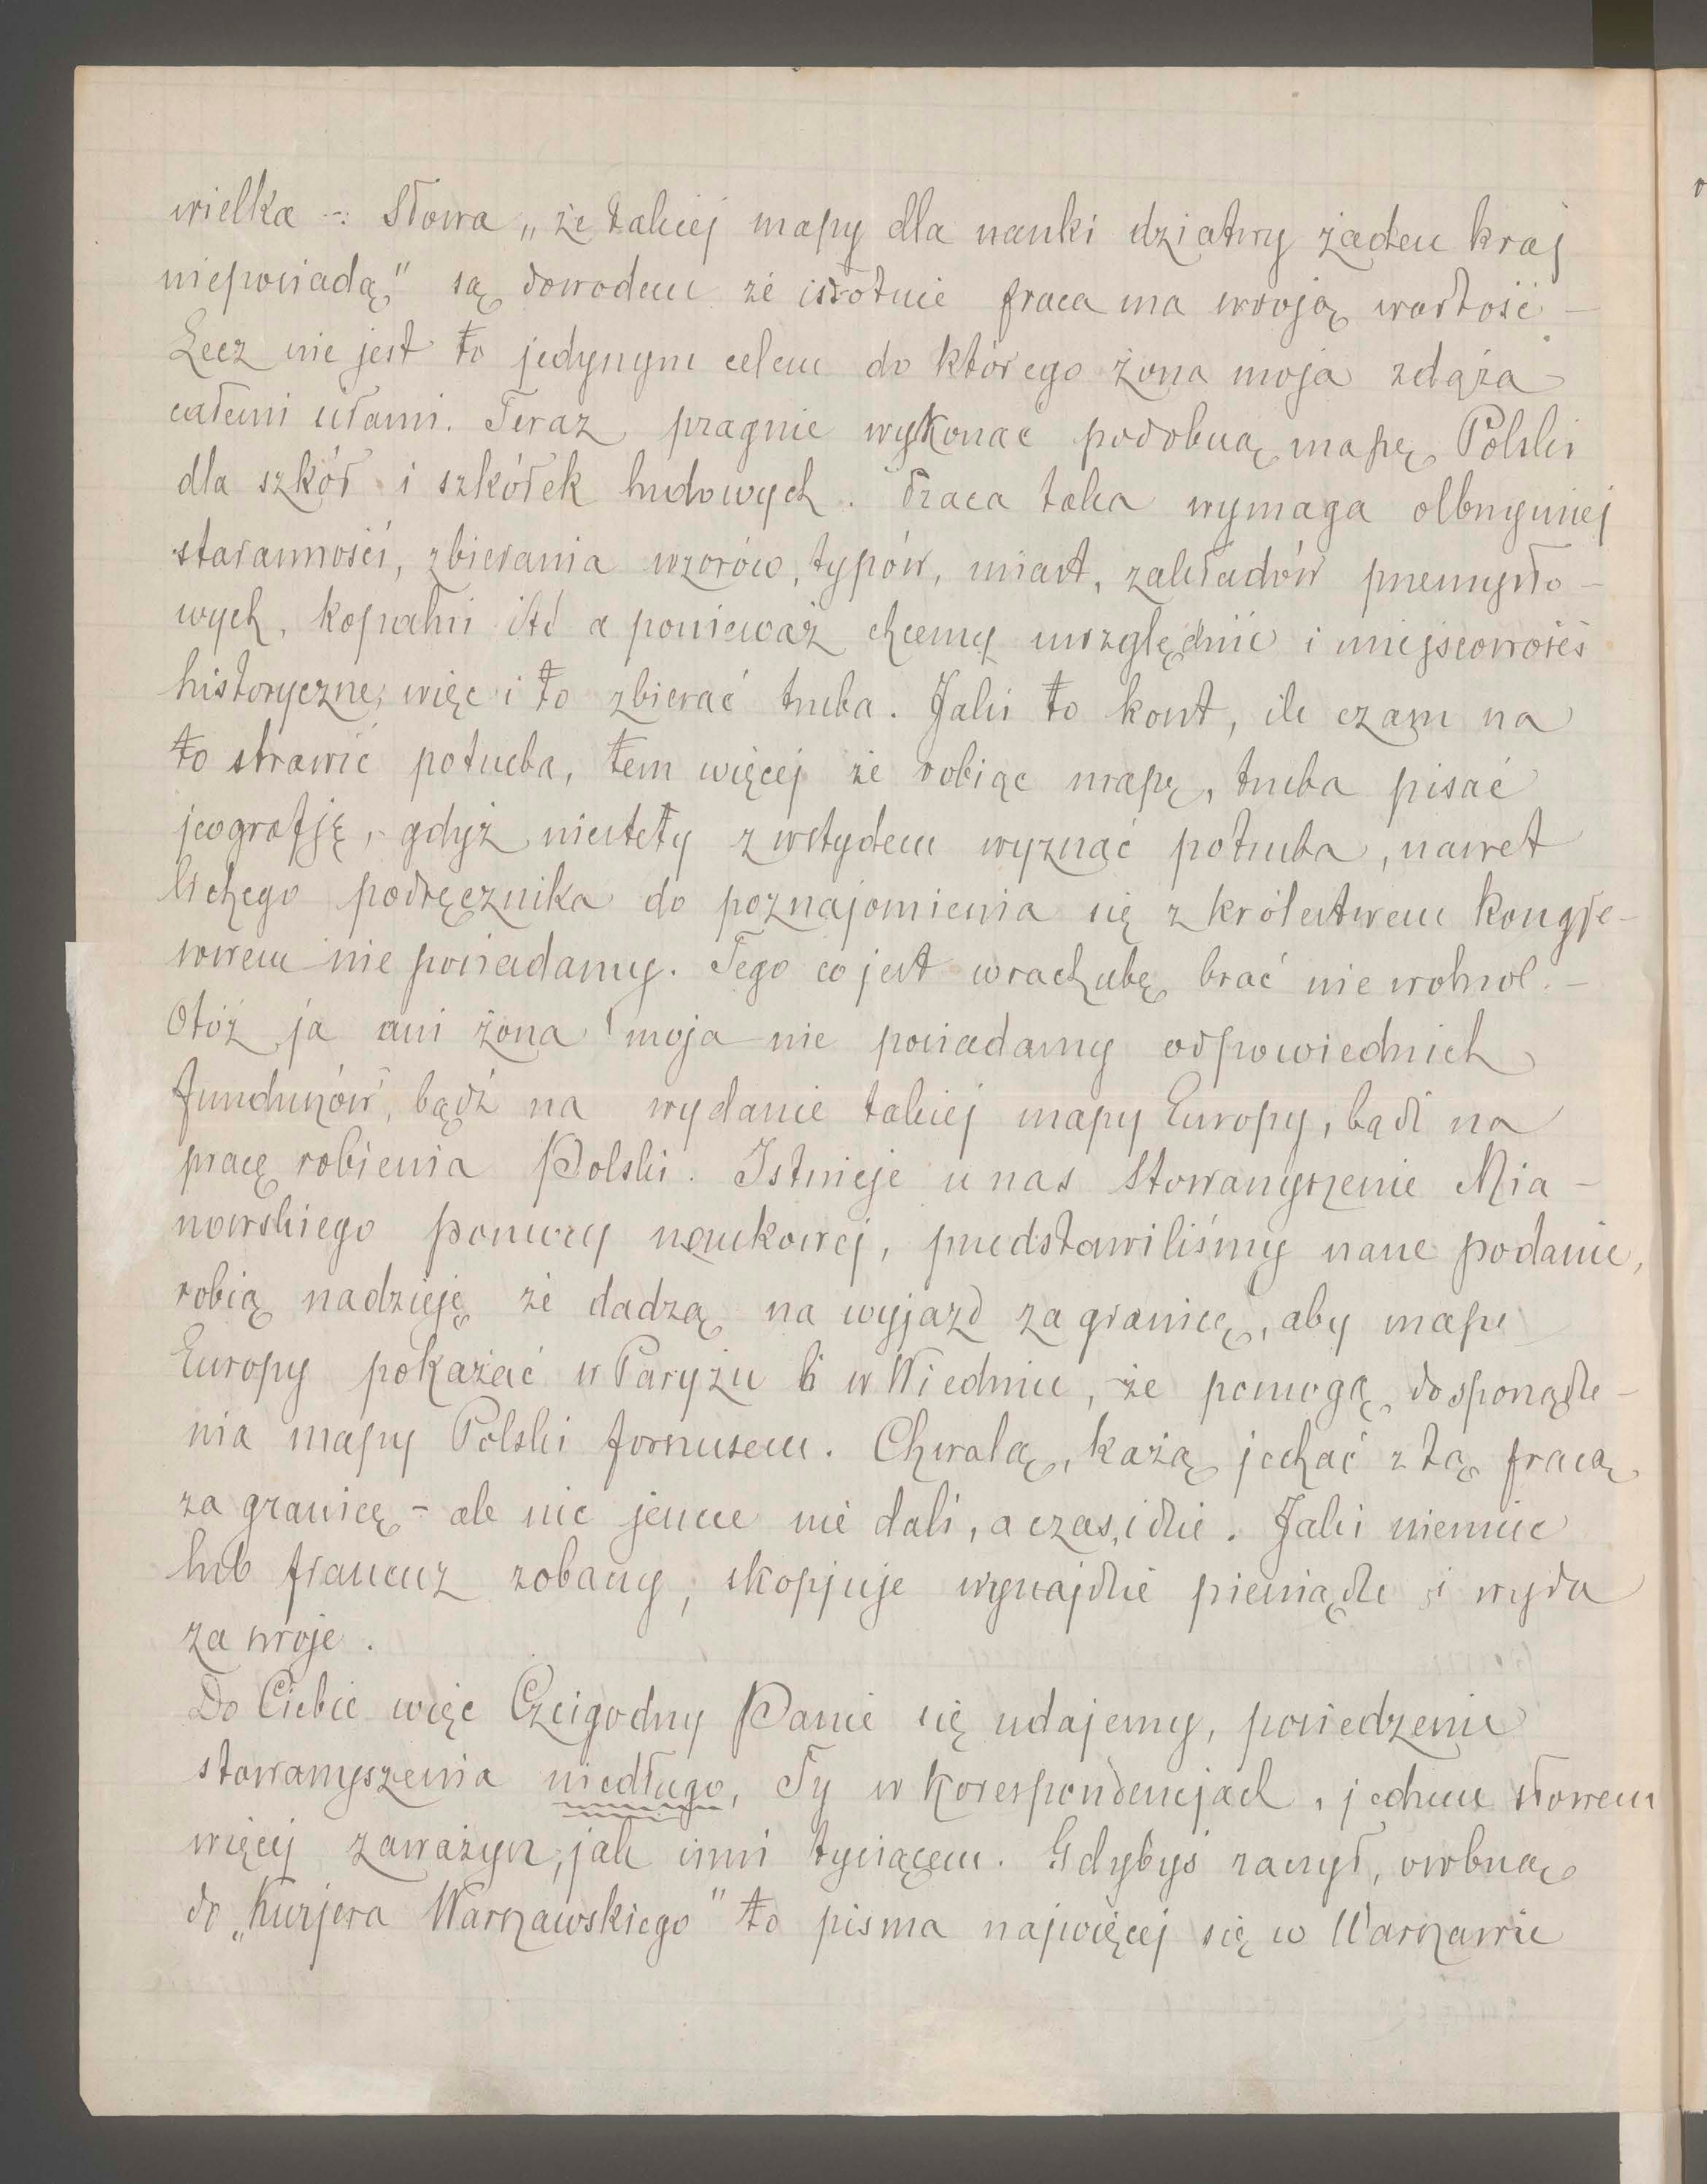 wielka -: Słowa „że takiej mapy dla nauki dziatwy żaden kraj
nieposiada," są dowodem że istotnie praca ma swoją wartość -
Lecz nie jest to jedynym celem do którego żona moja zdąża
całemi siłami. Teraz pragnie wykonać podobną mapę Polski
dla szkół i szkółek ludowych. Praca taka wymaga olbrzymiej
staranności, zbierania wzorów, typów, miast, zakładów przemysło-
wych, kopalni itd a ponieważ chcemy uwzględnić i miejscowości
historyczne, więc i to zbierać trzeba. Jaki to koszt, ile czasu na
to strawić potrzeba, tem więcej że robiąc mapę, trzeba pisać
jeografję, gdyż niestety z wstydem wyznać potrzeba, nawet
lichego podręcznika do poznajomienia się z królestwem kongre-
sowem nie posiadamy. Tego co jest w rachubę brać nie wolno!. -
Otóż ja ani żona moja nie posiadamy odpowiednich
funduszów, bądź na wydanie takiej mapy Europy, bądź na
pracę robienia Polski. Istnieje u nas Stowarzyszenie Mia-
nowskiego pomocy naukowej, przedstawiliśmy nasze podanie,
robią nadzieję że dadzą na wyjazd za granicę, aby mapę
Europy pokazać w Paryżu i w Wiedniu, że pomogą do sporządze-
nia mapy Polski forszusem. Chwalą, każą jechać z tą pracą
za granicę - ale nic jeszcze nie dali, a czas idzie. Jaki niemiec
lub francuz zobaczy, skopjuje wynajdzie pieniądze i wyda
za swoje.
Do Ciebie więc Czcigodny Panie się udajemy, posiedzenie
stowarzyszenia niedługo, Ty w korespondencjach, jednem słowem
więcej zaważysz, jak inni tysiącem. Gdybyś raczył, osobną
do „Kurjera Warszawskiego" to pisma najwięcej się w Warszawie